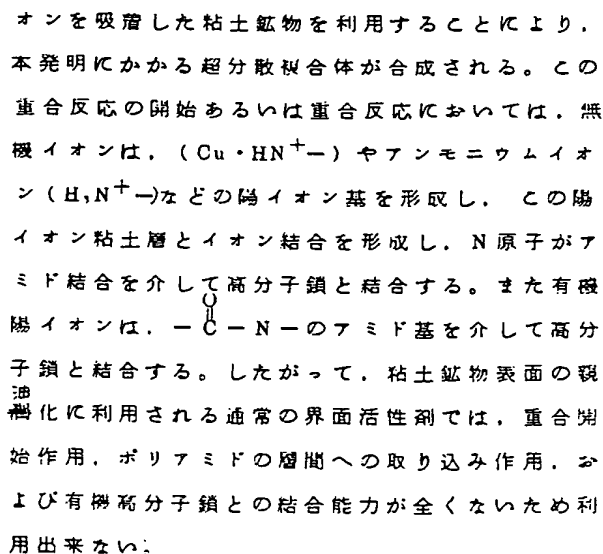 オンを吸着した粘土鉱物を利用することにより，
本発明にかかる超分散複合体が合成される。この
重合反応の開始あるいは重合反応においては，無
機イオンは，（Cu・HN⁺－）やアンモニウムイオ
ン（H₃N⁺－)などの陽イオン基を形成し，この陽
イオン粘土層とイオン結合を形成し，N原子がア
ミド結合を介して高分子鎖と結合する。また有機
O
陽イオンは，－C－N－のアミド基を介して高分
子鎖と結合する。したがって，粘土鉱物表面の親
油
化に利用される通常の界面活性剤では，重合開
始作用，ポリアミドの層間への取り込み作用，お
よび有機高分子鎖との結合能力が全くないため利
用出来ない。